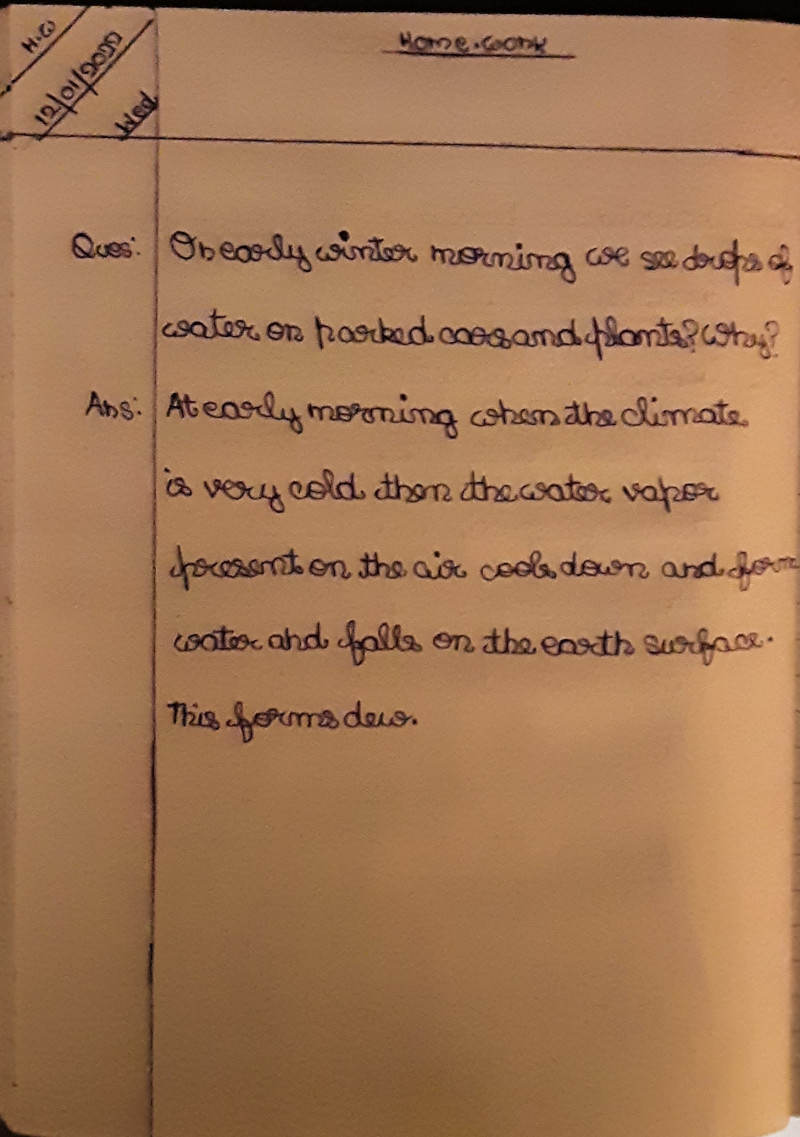 H.W
12/01/2022
Wed
Home.work
Ques: On early winter morning we see drops of
water on parked cars and plants? Why?
Ans: At early morning when the climate
is very cold then the water vapor
present on the air cools down and form
water and falls on the earth surface.
This forms dew.